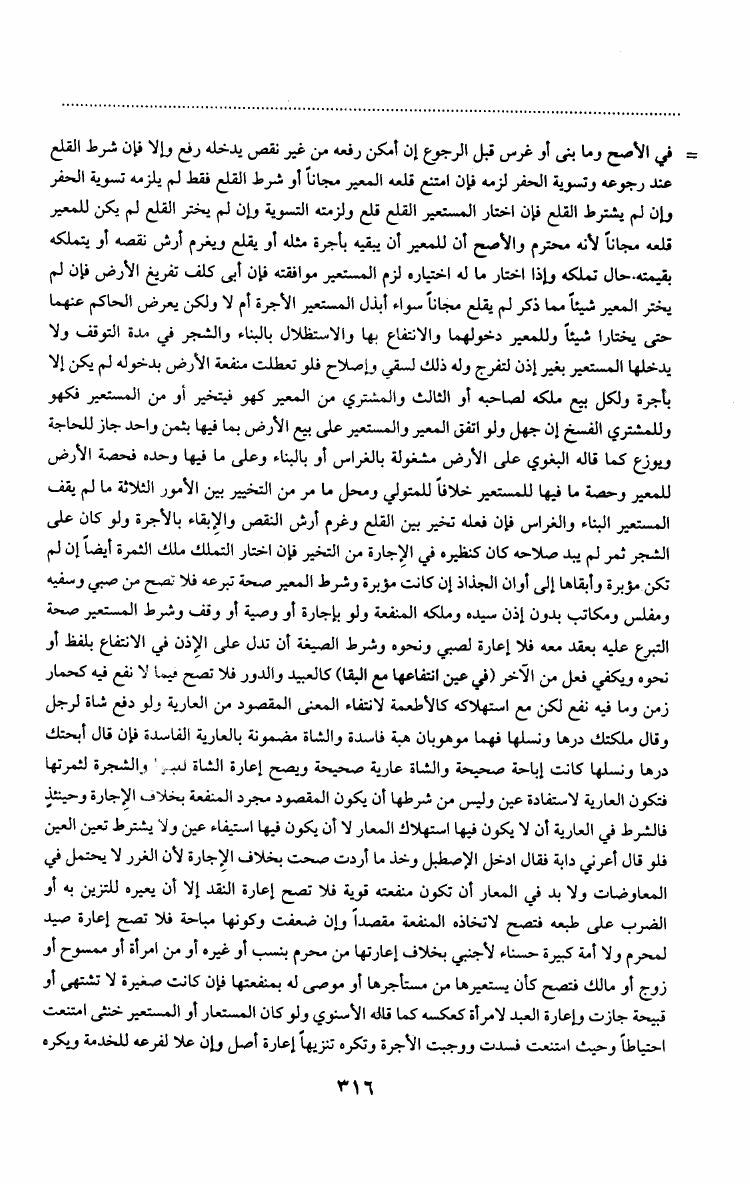 = في الأصح وما بنى أو غرس قبل الرجوع إن أمكن رفعه من غير نقص يدخله رفع وإلا فإن شرط القلع
عند رجوعه وتسوية الحفر لزمه فإن امتنع قلعه المعير مجاناً أو شرط القلع فقط لم يلزمه تسوية الحفر
وإن لم يشترط القلع فإن اختار المستعير القلع قلع ولزمته التسوية وإن لم يختر القلع لم يكن للمعير
قلعه مجاناً لأنه محترم والأصح أن للمعير أن يبقيه بأجرة مثله أو يقلع ويغرم أرش نقصه أو يتملكه
بقيمته.حال تملكه وإذا اختار ما له اختياره لزم المستعير موافقته فإن أبى كلف تفريغ الأرض فإن لم
يختر المعير شيئاً مما ذكر لم يقلع مجاناً سواء أبذل المستعير الأجرة أم لا ولكن يعرض الحاكم عنهما
حتى يختارا شيئاً وللمعير دخولهما والانتفاع بها والاستظلال بالبناء والشجر في مدة التوقف ولا
يدخلها المستعير بغير إذن لتفرج وله ذلك لسقي وإصلاح فلو تعطلت منفعة الأرض بدخوله لم يكن إلا
بأجرة ولكل بيع ملكه لصاحبه أو الثالث والمشتري من المعير كهو فيتخير أو من المستعير فكهو
وللمشتري الفسخ إن جهل ولو اتفق المعير والمستعير على بيع الأرض بما فيها بثمن واحد جاز للحاجة
ويوزع كما قاله البغوي على الأرض مشغولة بالغراس أو بالبناء وعلى ما فيها وحده فحصة الأرض
للمعير وحصة ما فيها للمستعير خلافاً للمتولي ومحل ما مر من التخيير بين الأمور الثلاثة ما لم يقف
المستعير البناء والغراس فإن فعله تخير بين القلع وغرم أرش النقص والإبقاء بالأجرة ولو كان على
الشجر ثمر لم يبد صلاحه كان كنظيره في الإجارة من التخير فإن اختار التملك ملك الثمرة أيضاً إن لم
تكن مؤبرة وأبقاها إلى أوان الجذاذ إن كانت مؤبرة وشرط المعير صحة تبرعه فلا تصح من صبي وسفيه
ومفلس ومكاتب بدون إذن سيده وملكه المنفعة ولو بإجارة أو وصية أو وقف وشرط المستعير صحة
التبرع عليه بعقد معه فلا إعارة لصبي ونحوه وشرط الصيغة أن تدل على الإذن في الانتفاع بلفظ أو
نحوه ويكفي فعل من الآخر (في عين انتفاعها مع البقا) كالعبيد والدور فلا تصح فيما لا نفع فيه كحمار
زمن وما فيه نفع لكن مع استهلاكه كالأطعمة لانتفاء المعنى المقصود من العارية ولو دفع شاة لرجل
وقال ملكتك درها ونسلها فهما موهوبان هبة فاسدة والشاة مضمونة بالعارية الفاسدة فإن قال أبحتك
درها ونسلها كانت إباحة صحيحة والشاة عارية صحيحة ويصح إعارة الشاة والشجرة لثمرتها
فتكون العارية لاستفادة عين وليس من شرطها أن يكون المقصود مجرد المنفعة بخلاف الإجارة وحينئذٍ
فالشرط في العارية أن لا يكون فيها استهلاك المعار لا أن يكون فيها استيفاء عين ولا يشترط تعين العين
فلو قال أعرني دابة فقال ادخل الإصطبل وخذ ما أردت صحت بخلاف الإجارة لأن الغرر لا يحتمل في
المعاوضات ولا بد في المعار أن تكون منفعته قوية فلا تصح إعارة النقد إلا أن يعيره للتزين به أو
الضرب على طبعه فتصح لاتخاذه المنفعة مقصداً وإن ضعفت وكونها مباحة فلا تصح إعارة صيد
لمحرم ولا أمة كبيرة حسناء لأجنبي بخلاف إعارتها من محرم بنسب أو غيره أو من امرأة أو ممسوح أو
زوج أو مالك فتصح كأن يستعيرها من مستأجرها أو موصى له بمنفعتها فإن كانت صغيرة لا تشتهى أو
قبيحة جازت وإعارة العبد لامرأة كعكسه كما قاله الأسنوي ولو كان المستعار أو المستعير خنثى امتنعت
احتياطاً وحيث امتنعت فسدت ووجبت الأجرة وتكره تنزيهاً إعارة أصل وإن علا لفرعه للخدمة ويكره
٣١٦